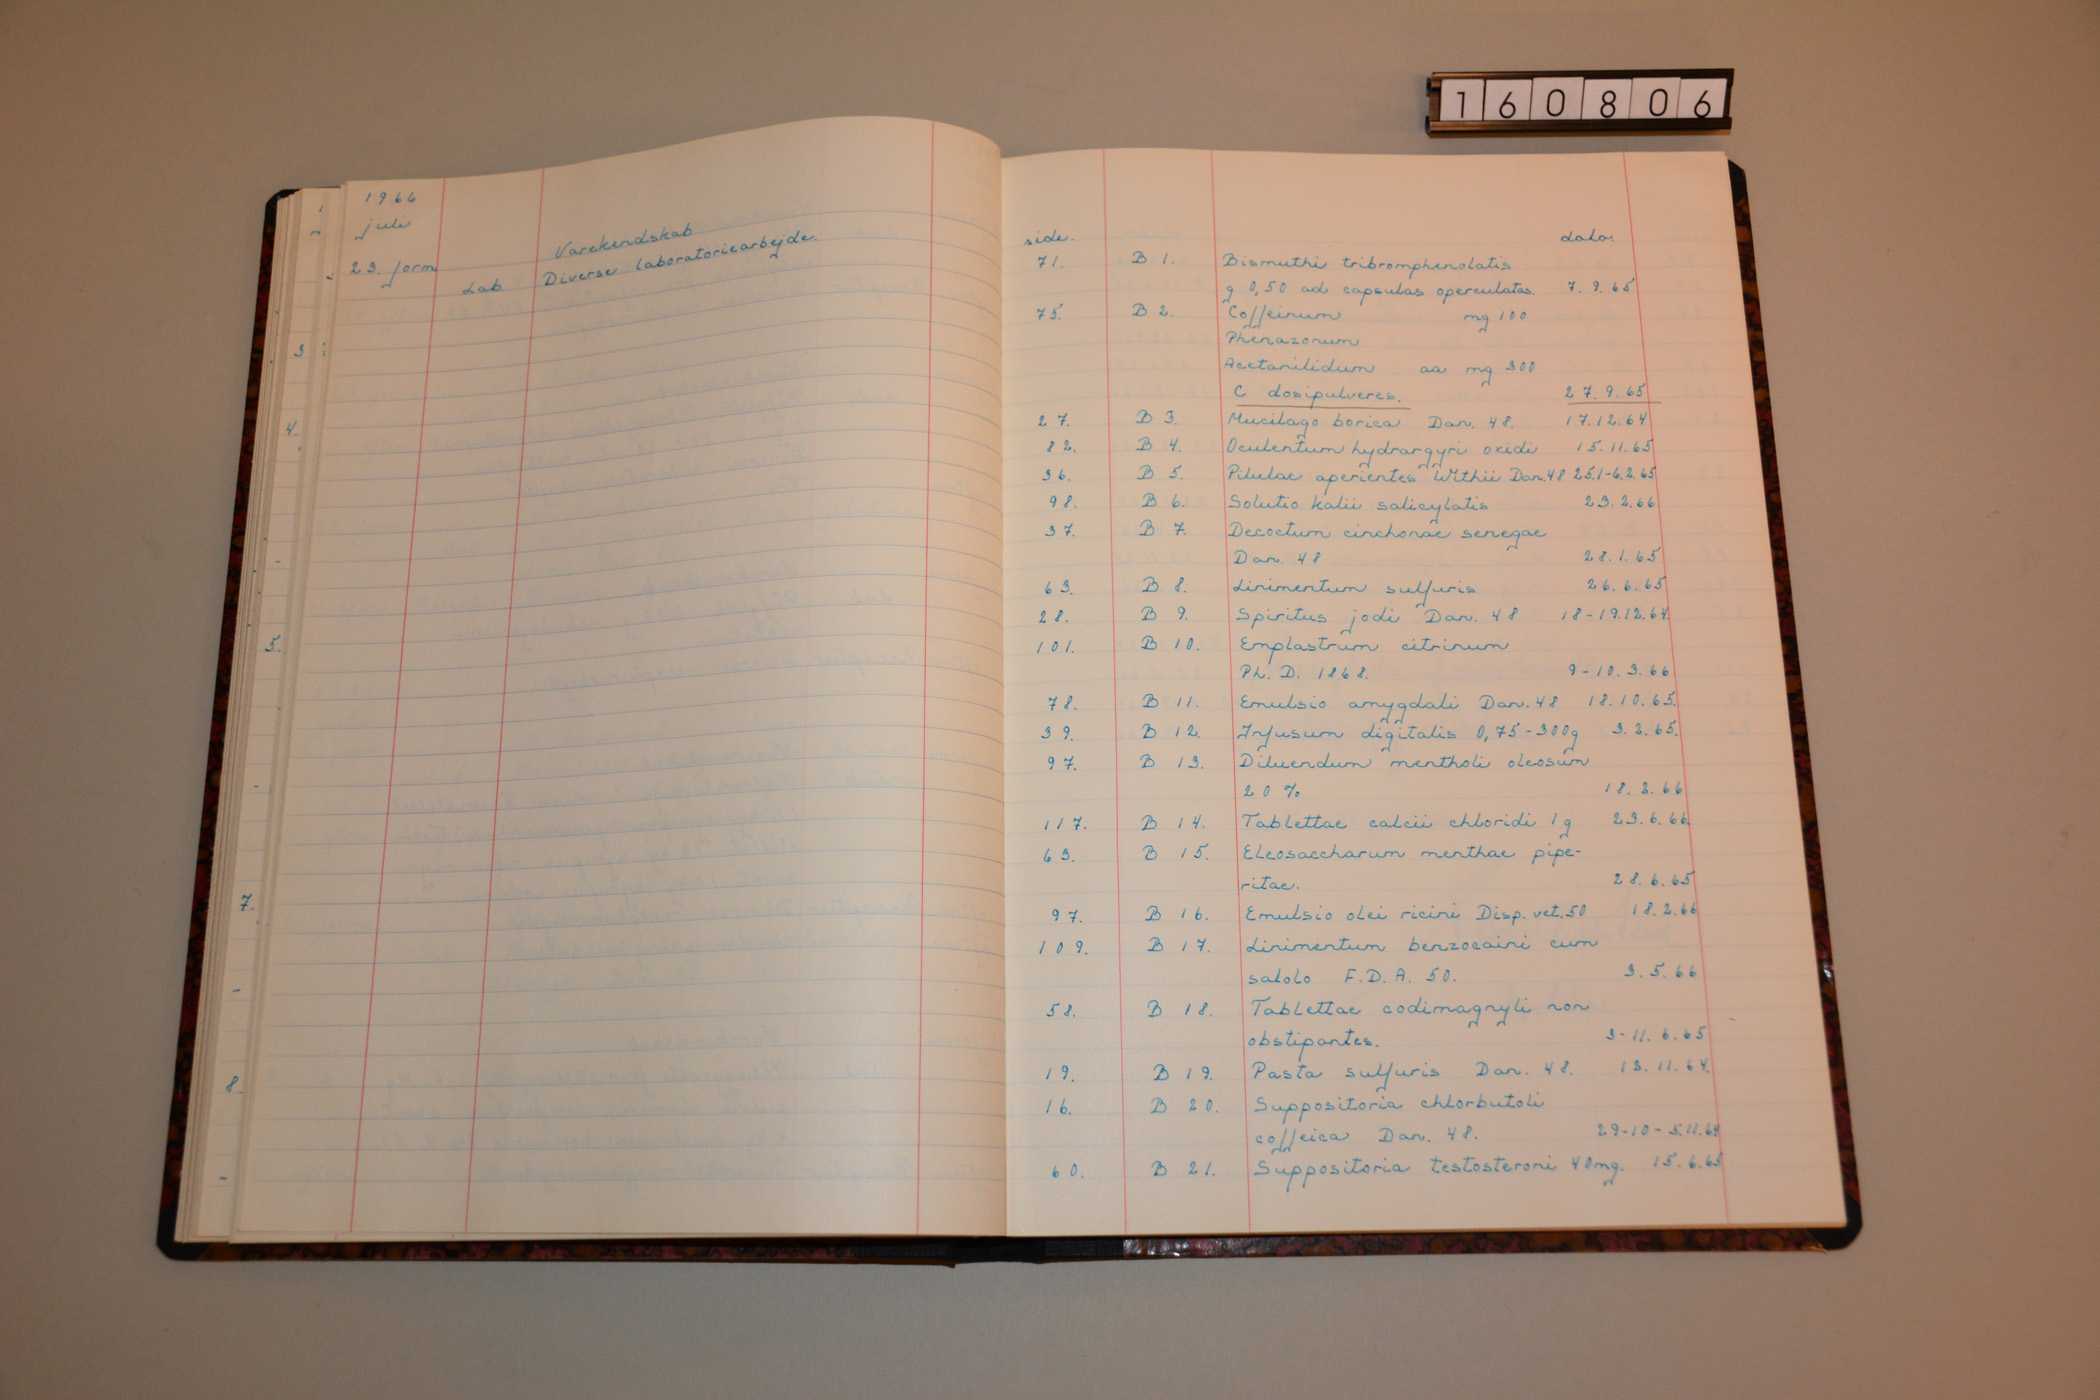 160806
1966
juli
23. form
Varekendskab
Lab. Diverse laboratoriearbejde.
3
4.
5.
7.
8.
side. dato.
71. B 1. Bismuthi tribromphenolatis
g 0,50 ad capsulas operculatas. 7. 9. 65
75. B 2. Coffeinum mg 100
Phenazonum
Acetanilidum aa mg 300
C dosipulveres. 27. 9. 65
27. B 3. Mucilago borica Dan. 48. 17.12.64
82. B 4. Oculentum hydrargyri oxidi 15.11.65
36. B 5. Pilulae aperientes Withii Dan.48 25.1-6.2.65
98. B 6. Solutio kalii salicylatis 23.2.66
37. B 7. Decoctum cinchonae senegae
Dan. 48 28.1.65
63. B 8. Linimentum sulfuris 26.6.65
28. B 9. Spiritus jodi Dan. 48 18-19.12.64.
101. B 10. Emplastrum citrinum
Ph. D. 1868. 9-10.3.66
78. B 11. Emulsio amygdali Dan.48 18.10.65.
39. B 12. Infusum digitalis 0,75-300g 3.2.65.
97. B 13. Diluendum mentholi oleosum
20 % 18.2.66
117. B 14. Tablettae calcii chloridi 1g 23.6.66
63. B 15. Eleosaccharum menthae pipe-
ritae. 28.6.65
97. B 16. Emulsio olei ricini Disp. vet.50 18.2.66
109. B 17. Linimentum benzocaini cum
salolo F.D.A. 50. 3.5.66
58. B 18. Tablettae codimagnyli non
obstipantes. 3-11.6.65
19. B 19. Pasta sulfuris Dan. 48. 13.11.64.
16. B 20. Suppositoria chlorbutoli
coffeica Dan. 48. 29-10-5.11.64
60. B 21. Suppositoria testosteroni 40mg. 15.6.65